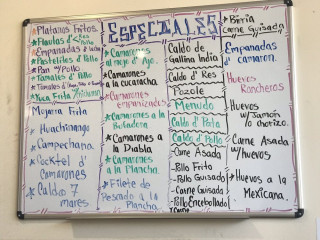 ESPECIALES
Platanos Fritos.
Flautas d'
Empanadas d
Pastelitos d' Pollo
Pan
Tomales d' Pollo
Tamales d'
Yuca Frita
Mojarra Frita
Huachinango
Campechana
Cocktel d'
Camarones
Caldo 7
mares
Camarones
al mojo d' Ajo.
Camarones
a la cucaracha.
Camarones
empanizados
Camarones a la
Botadora
Camarones a
la Diabla
Camarones
a la Plancha.
Filete de
Pescado a la
Plancha
Caldo de
Gallina India
Caldo d' Res
Pozole
Menudo
Caldo d' Pata
Caldo d' Pollo
Carne Asada
Pollo Frito
Carne Guisada
Pollo Encebollado
Carne
Birria
Carne Guisada
Empanadas
d' camaron.
Huevos
Rancheros
Huevos
w/Jamón
lo chorizo.
Carne Asada
w/huevos
Huevos a la
Mexicana.